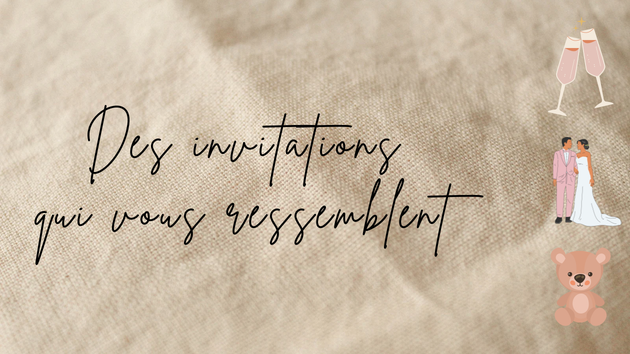 Des invitations
qui vous ressemblent